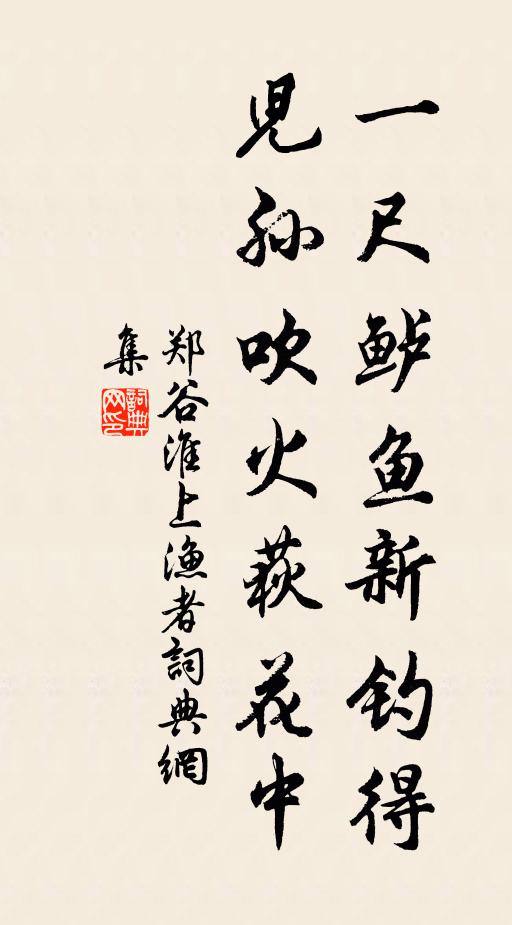 一尺鲈鱼新钓得
児孙吹火荻花中
郑谷淮上渔者詞典網
集
詞典网印